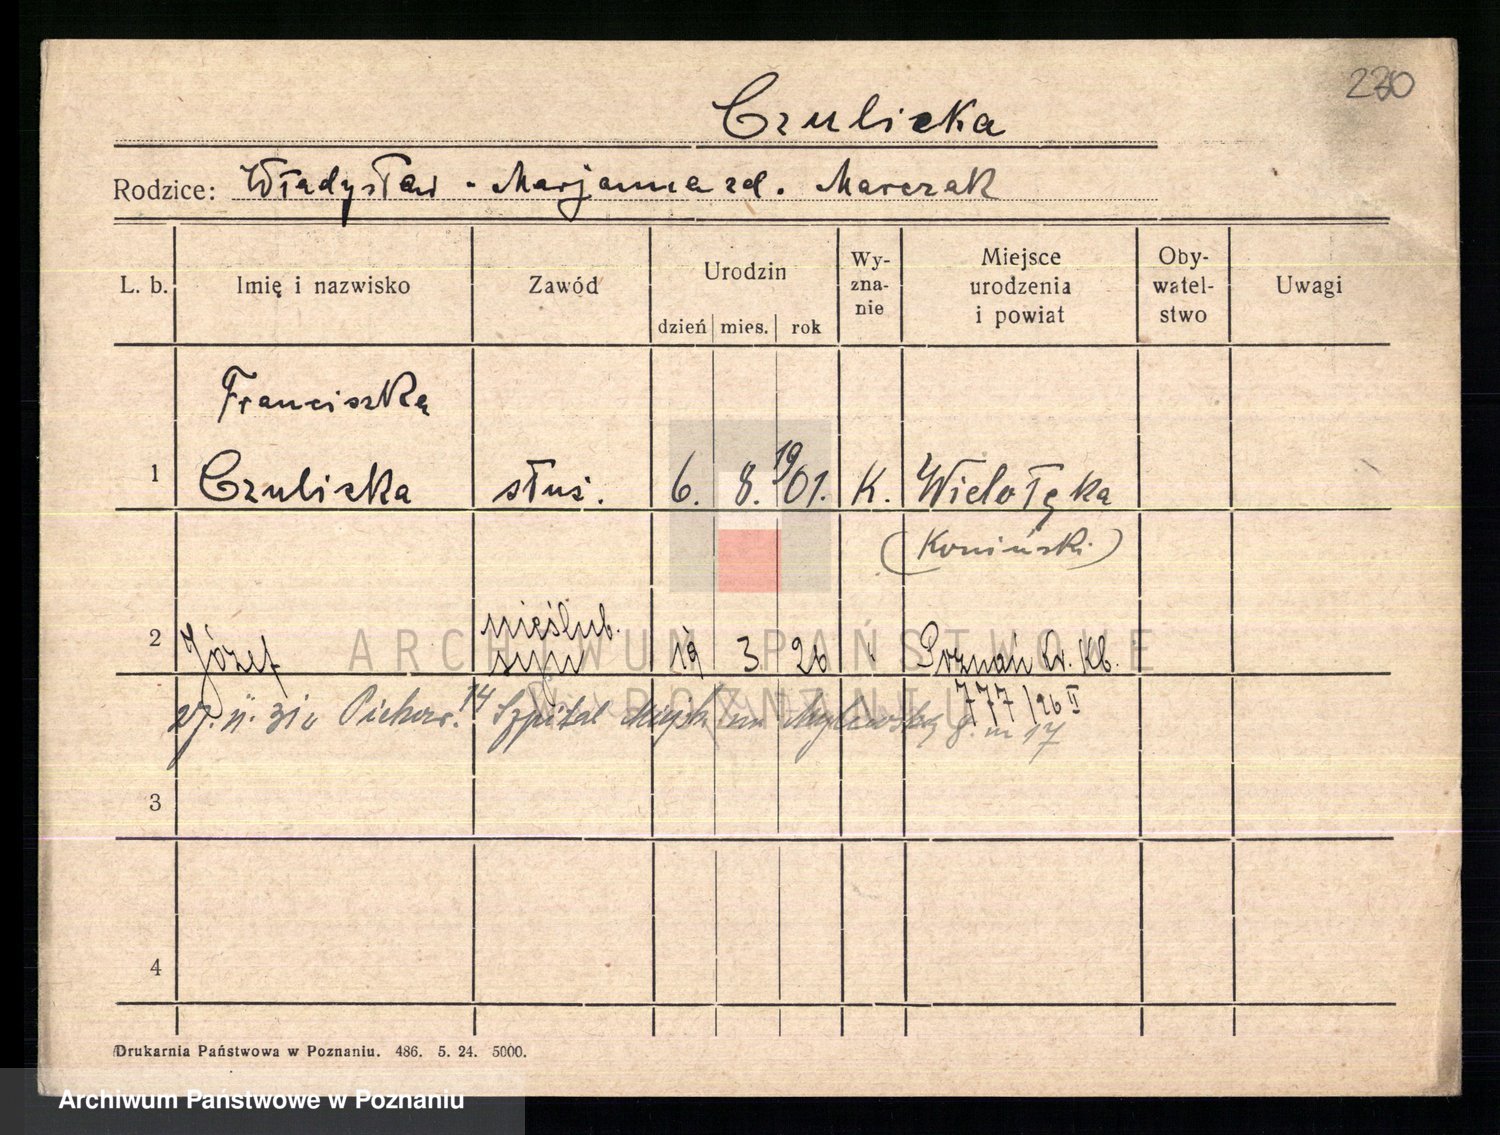 230
Czulicka
Rodzice: Władysław - Marjanna zd. Marczak
L. b. Imię i nazwisko Zawód Urodzin dzień mies. rok Wy-zna-nie Miejsce urodzenia i powiat Oby-watel-stwo Uwagi
Franciszka
1 Czuliska służ. 6. 8. 1901. K. Wielołęka
(Koniński)
nieślub.
2 Józef syn 19 3 26 Poznań Kr. Kb.
777/26 II
14 Szpital Miejsk 8. m 17
3
4
Drukarnia Państwowa w Poznaniu. 486. 5. 24. 5000.
ARCHIWUM PAŃSTWOWE
W POZNANIU
Archiwum Państwowe w Poznaniu